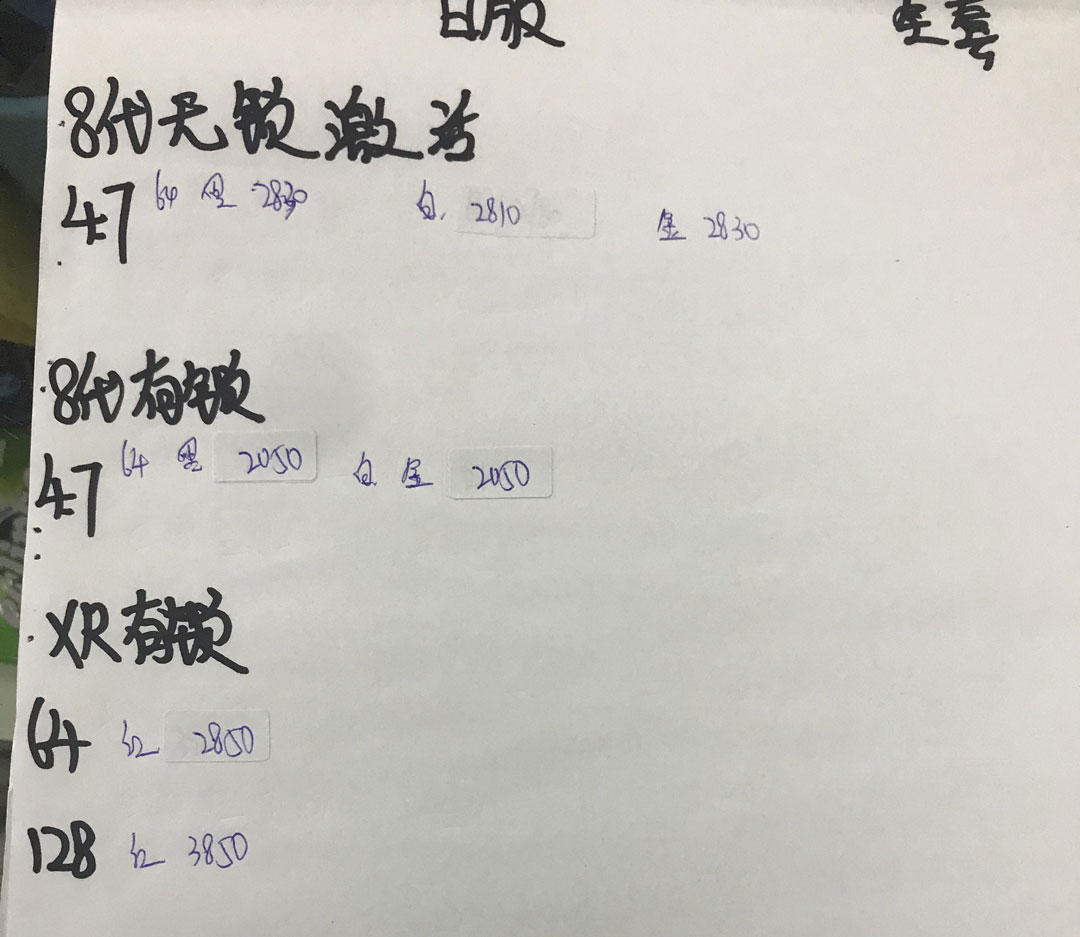 日版 全套
8代无锁激活
4.7 64 黑 2830 白 2810 金 2830
8代有锁
4.7 64 黑 2050 白 金 2050
XR有锁
64 红 2850
128 红 3850